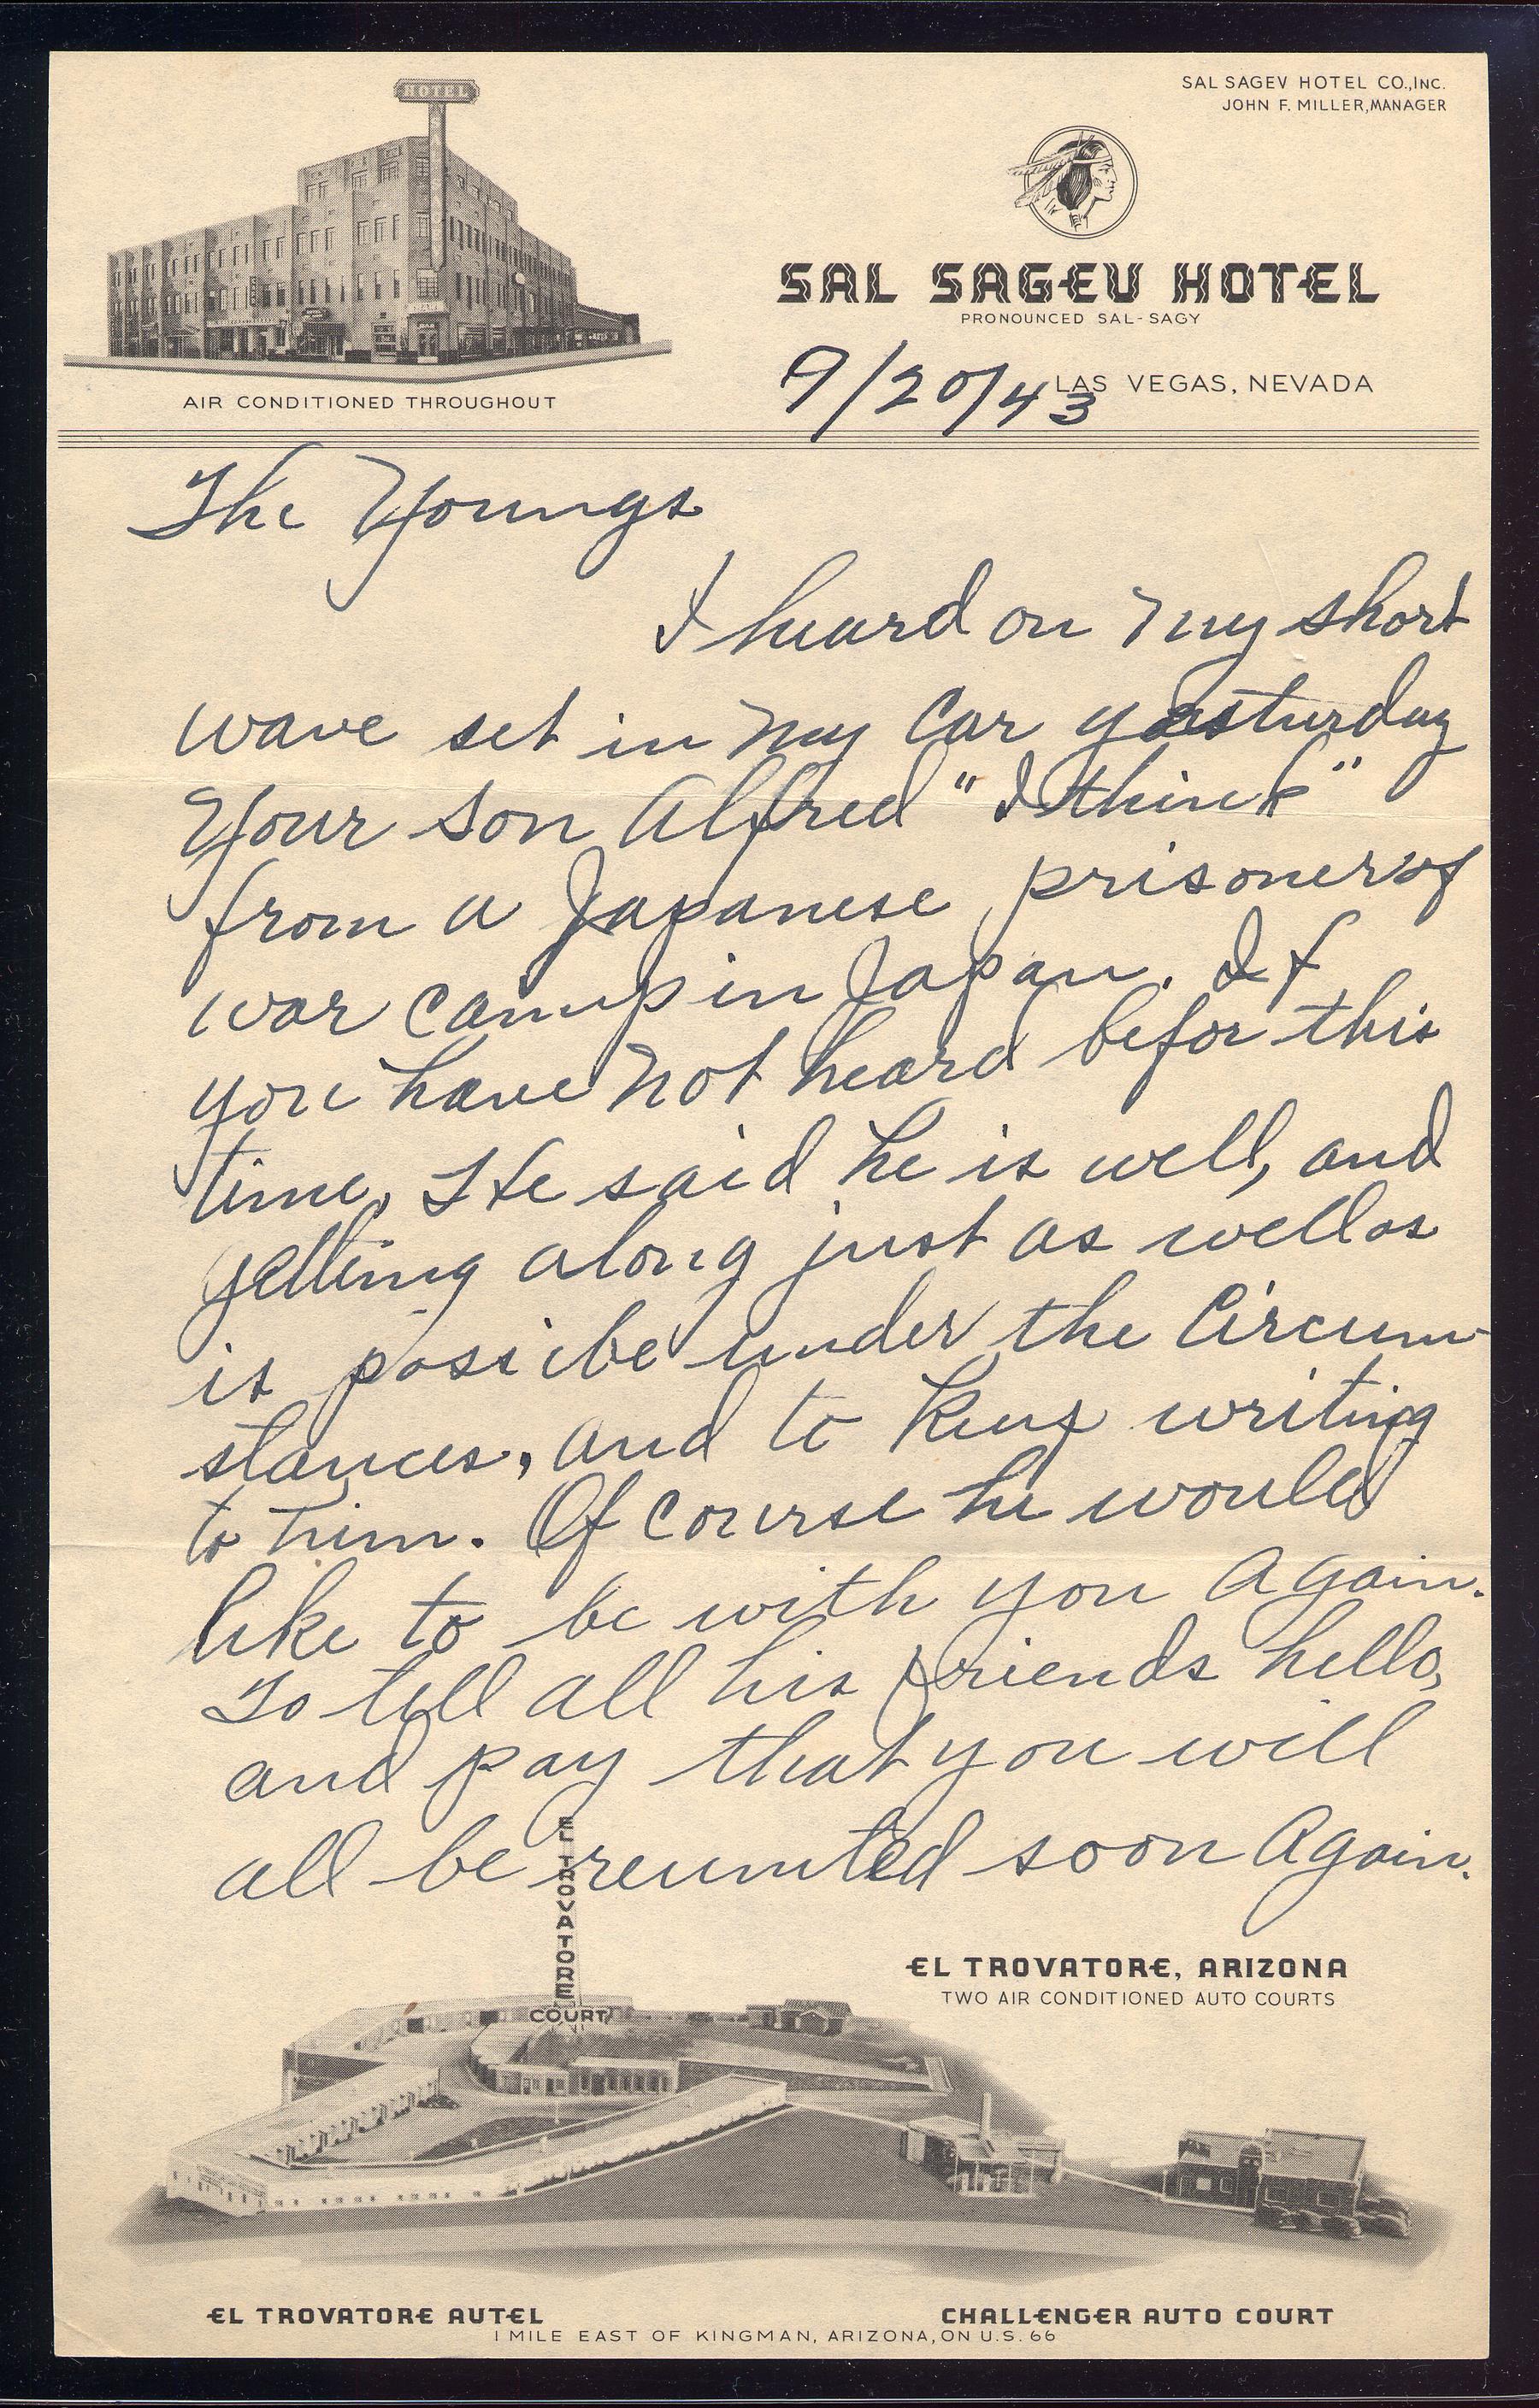 HOTEL
SAL SAGEV HOTEL CO., INC.
JOHN F. MILLER, MANAGER
SAL SAGEV HOTEL
PRONOUNCED SAL-SAGY
9/20/43 LAS VEGAS, NEVADA
AIR CONDITIONED THROUGHOUT
The Youngs
I heard on my short
wave set in my car yasturday
Your son Alfred "I think"
from a Japanese prisoner of
war camp in Japan. If
you have not heard befor this
time. He said he is well, and
getting along just as well as
is possibe under the Circum-
stances, and to keep writing
to him. Of course he would
like to be with you again.
To tell all his friends hello,
and pay that you will
all be reunited soon again.
EL TROVATORE
COURT
EL TROVATORE, ARIZONA
TWO AIR CONDITIONED AUTO COURTS
EL TROVATORE AUTEL
CHALLENGER AUTO COURT
1 MILE EAST OF KINGMAN, ARIZONA, ON U.S. 66